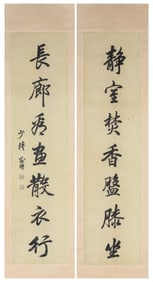 静室焚香盤膝坐
長廊看畫散衣行
少持